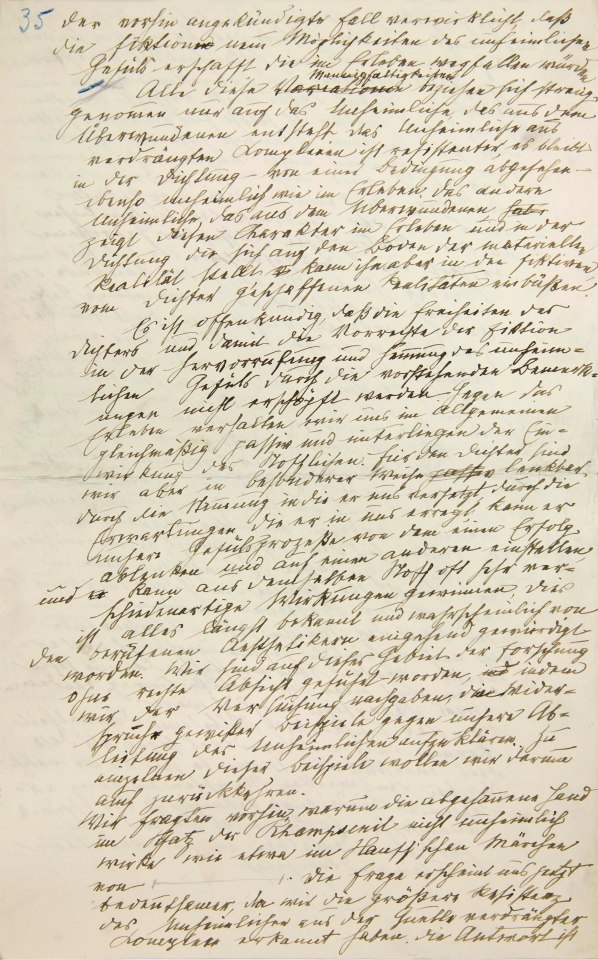 35
der vorhin angekündigte Fall verwirklicht, daß
die Fiktion neue Möglichkeiten des unheimlichen
Gefüls erschafft die im Erleben wegfallen würden
Alle diese Variationen Mannigfaltigkeiten beziehen sich streng
genommen nur auf das Unheimliche, das aus dem
Überwundenen entsteht das Unheimliche aus
verdrängten Complexen ist resistenter es bleibt
in der Dichtung – von einer Bedingung abgesehen –
ebenso unheimlich wie im Erleben das andere
Unheimliche, das aus dem Überwundenen
zeigt diesen Charakter im Erleben und in der
Dichtung die sich auf den Boden der materiellen
Realität stellt kann ihn aber in den fiktiven
vom Dichter geschaffenen Realitäten einbüßen.
Es ist offenkundig, daß die Freiheiten des
Dichters und damit die Vorrechte der Fiktion
in der Hervorrufung und Hemmung des unheim-
lichen Gefüls durch die vorstehenden Bemerk-
ungen nicht erschöpft werden. Gegen das
Erleben verhalten wir uns im Allgemeinen
gleichmäßig passiv und unterliegen der Ein-
wirkung des Stofflichen. Für den Dichter sind
wir aber in besonderer Weise passiv lenkbar,
durch die Stimmung in die er uns versetzt, durch die
Erwartungen, die er in uns erregt, kann er
unsere Gefülsprozeße von dem einen Erfolg
ablenken und auf einen anderen einstellen
und kann aus demselben Stoff oft sehr ver-
schiedenartige Wirkungen gewinnen. Dies
ist alles längst bekannt und wahrscheinlich von
den berufenen Aesthetikern eingehend gewürdigt
worden. Wir sind auf dieses Gebiet der Forschung
ohne rechte Absicht geführt worden, indem
wir der Versuchung nachgaben, den Wider-
spruch gewißer Beispiele gegen unsere Ab-
leitung des Unheimlichen aufzuklären. Zu
einzelnen dieser Beispiele wollen wir darum
auch zurückkehren.
Wir fragten vorhin, warum die abgehauene Hand
im Schatz des Rhampsenit nicht unheimlich
wirke wie etwa im Hauff'schen Märchen
von . Die Frage erscheint uns jetzt
bedeutsamer, da wir die größere Resistenz
des Unheimlichen aus der Quelle verdrängter
Complexe erkannt haben. die Antwort ist